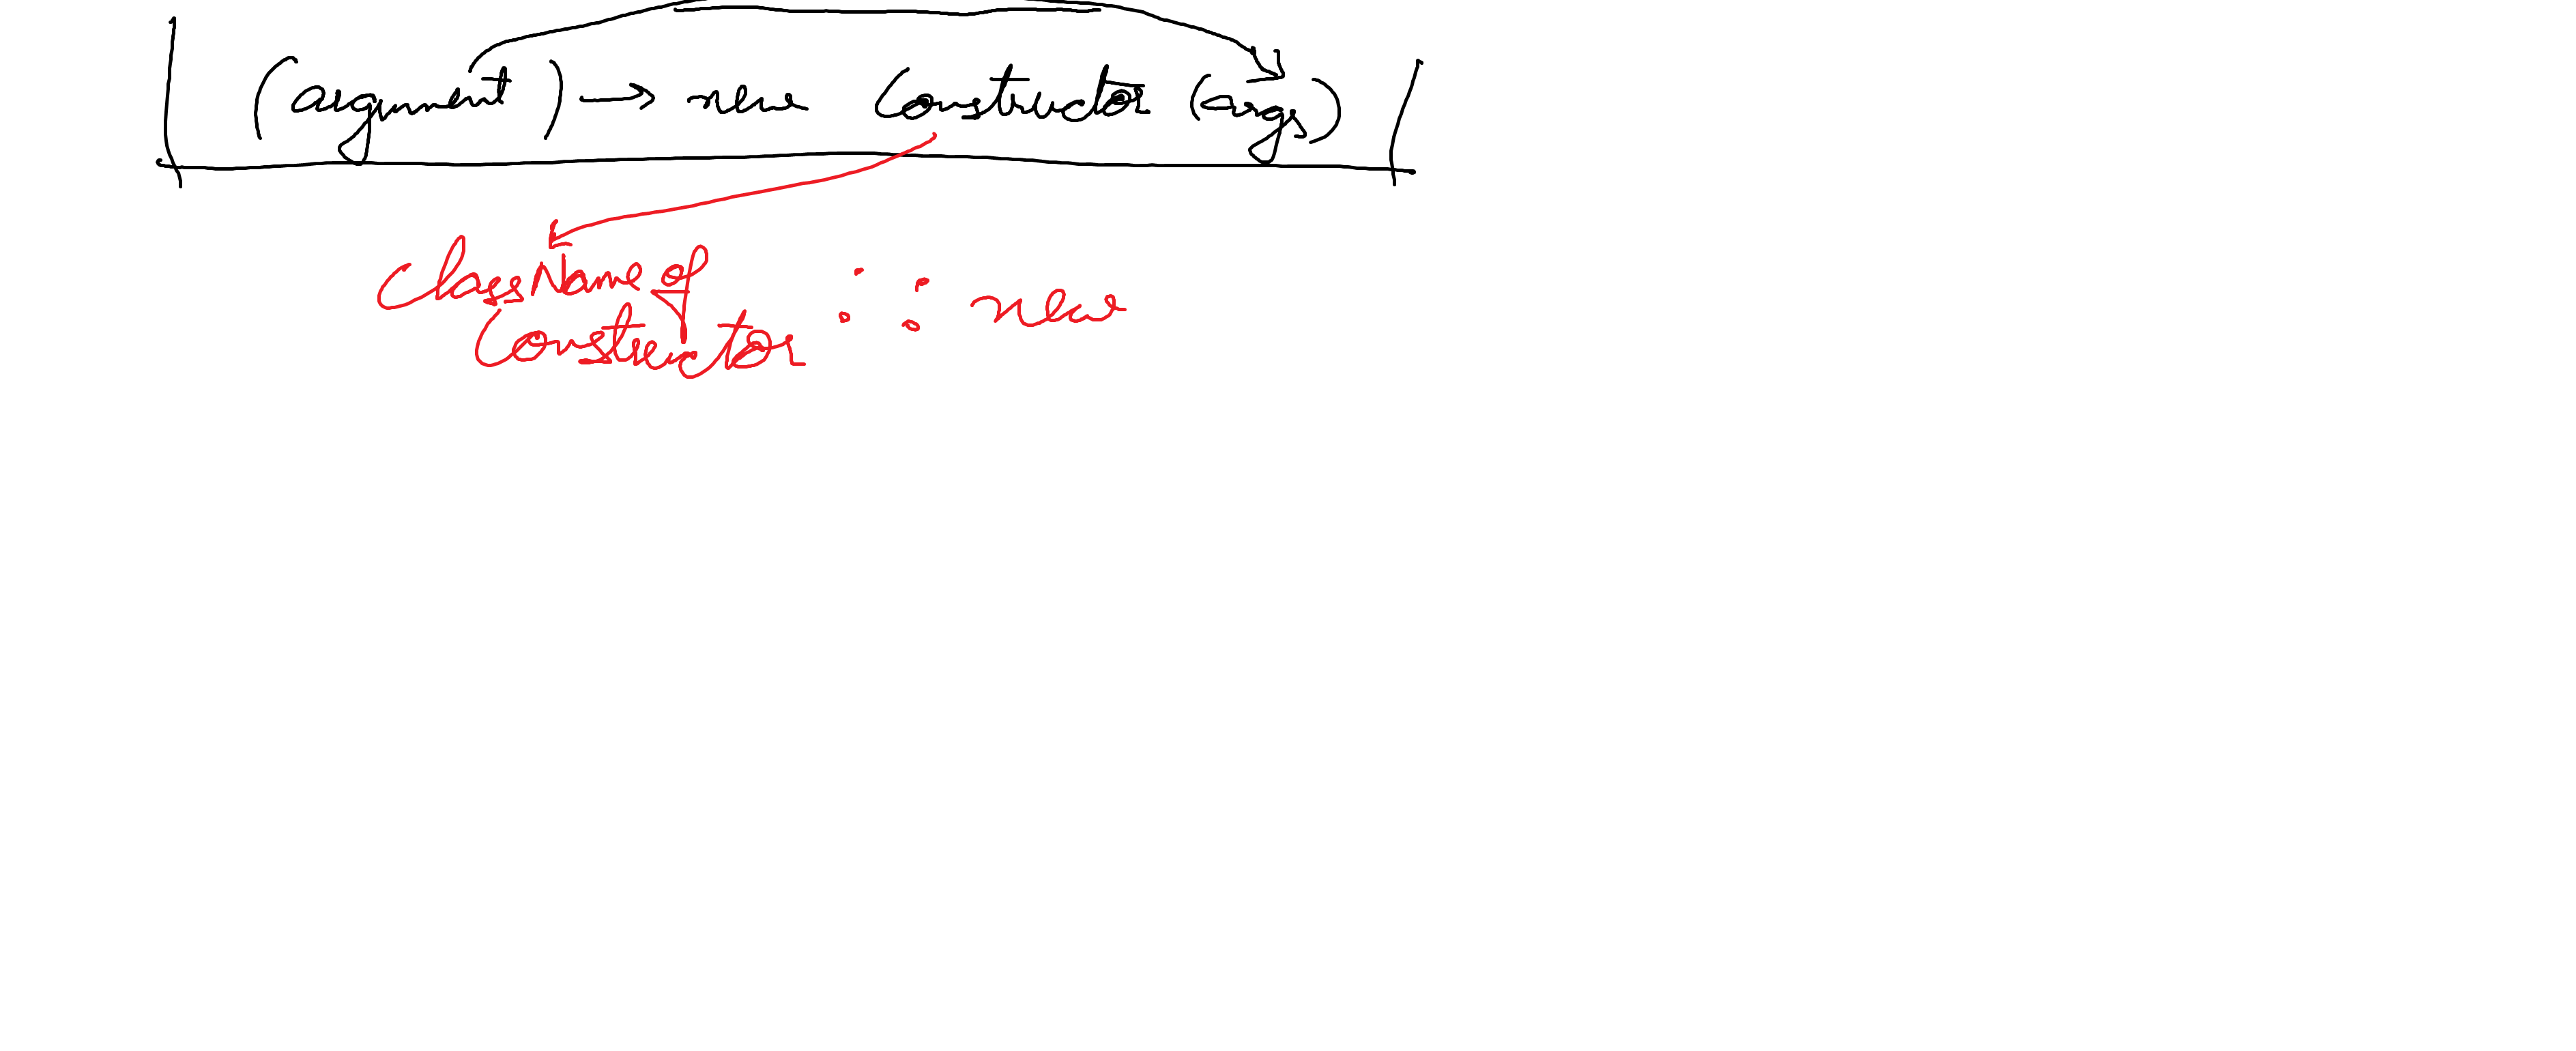 (argument) → new Constructor (args)
className of
Constructor :: new